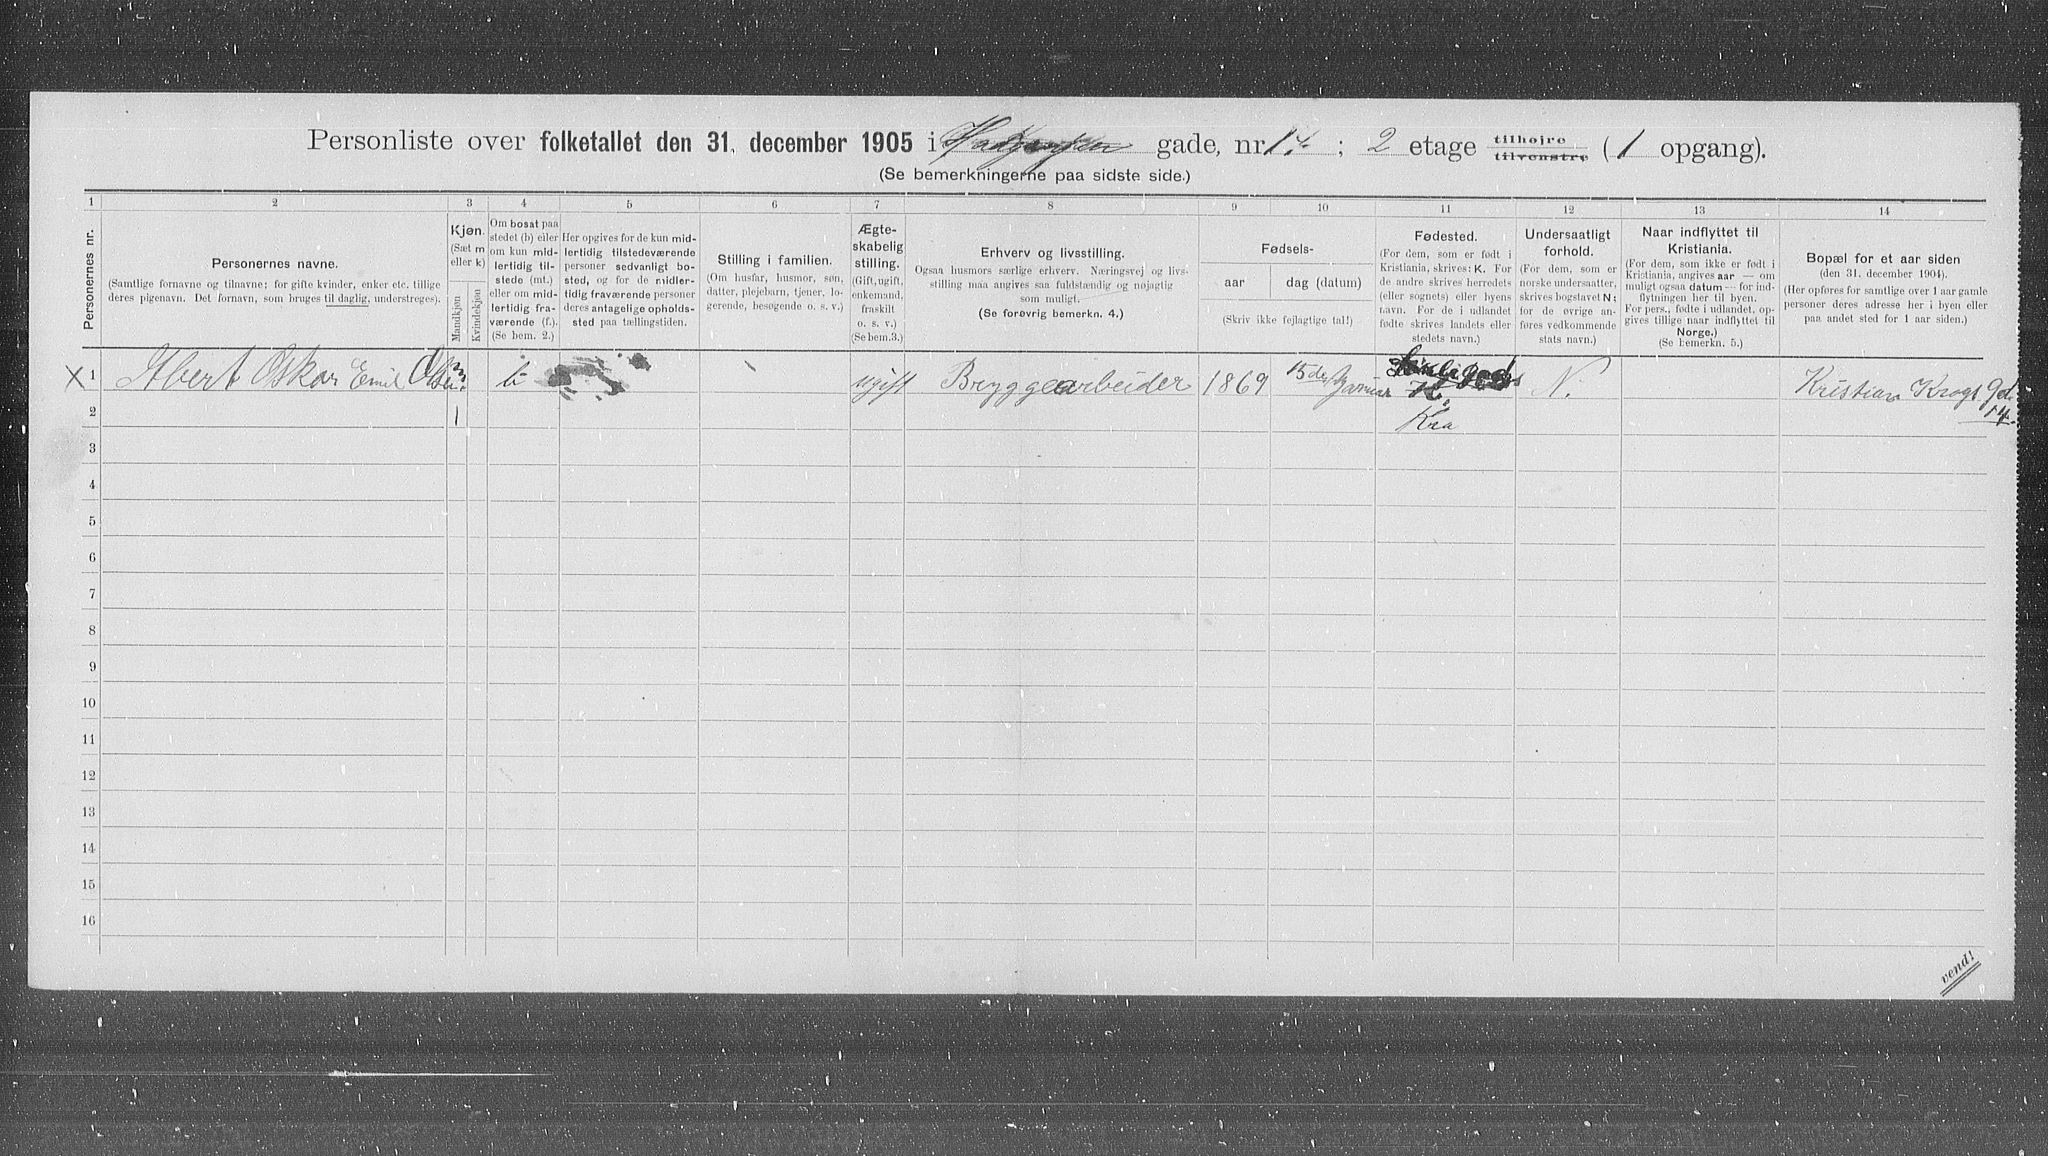 Personliste over folketallet den 31. december 1905 i gade, nr 14 ; 2 etage tilhøjre tilvenstre (1 opgang).
(Se bemerkningerne paa sidste side.)
1 2 3 4 5 6 7 8 9 10 11 12 13 14
Personernes nr.
Personernes navne.
(Samtlige fornavne og tilnavne; for gifte kvinder, enker etc. tillige
deres pigenavn. Det fornavn, som bruges til daglig, understreges).
Kjøn.
(Sæt m
eller k)
Mandkjøn
Kvindekjøn
Om bosat paa
stedet (b) eller
om kun mid-
lertidig til-
stede (mt.)
eller om mid-
lertidig fra-
værende (f.).
(Se bem. 2.)
Her opgives for de kun mid-
lertidig tilstedeværende
personer sedvanligt bo-
sted, og for de midler-
tidig fraværende personer
deres antagelige opholds-
sted paa tællingstiden.
Stilling i familien.
(Om husfar, husmor, søn,
datter, plejebarn, tjener, lo-
gerende, besøgende o. s. v.)
Ægte-
skabelig
stilling.
(Gift, ugift,
enkemand,
fraskilt
o. s. v.)
(Se bem.3.)
Erhverv og livsstilling.
Ogsaa husmors særlige erhverv. Næringsvej og livs-
stilling maa angives saa fuldstændig og nøjagtig
som muligt.
(Se forøvrig bemerkn. 4.)
Fødsels-
aar dag (datum)
(Skriv ikke fejlagtige tal!)
Fødested.
(For dem, som er født i
Kristiania, skrives: K. For
de andre skrives herredets
(eller sognets) eller byens
navn. For de i udlandet
fødte skrives landets eller
stedets navn.)
Undersaatligt
forhold.
(For dem, som er
norske undersaatter,
skrives bogstavet N;
for de øvrige an-
føres vedkommende
stats navn.)
Naar indflyttet til
Kristiania.
(For dem, som ikke er født i
Kristiania, angives aar — om
muligt ogsaa datum — for ind-
flytningen her til byen.
For pers., fødte i udlandet, op-
gives tillige naar indflyttet til
Norge.)
(Se bemerkn. 5.)
Bopæl for et aar siden
(den 31. december 1904).
(Her opføres for samtlige over 1 aar gamle
personer deres adresse her i byen eller
paa andet sted for 1 aar siden.)
X 1 Albert Oskar Emil Olsen m b ugift Bryggearbeider 1869 15de Januar K. N. Kristian Krogs gd.
2 1 Kra 14.
3
4
5
6
7
8
9
10
11
12
13
14
15
16
vend!